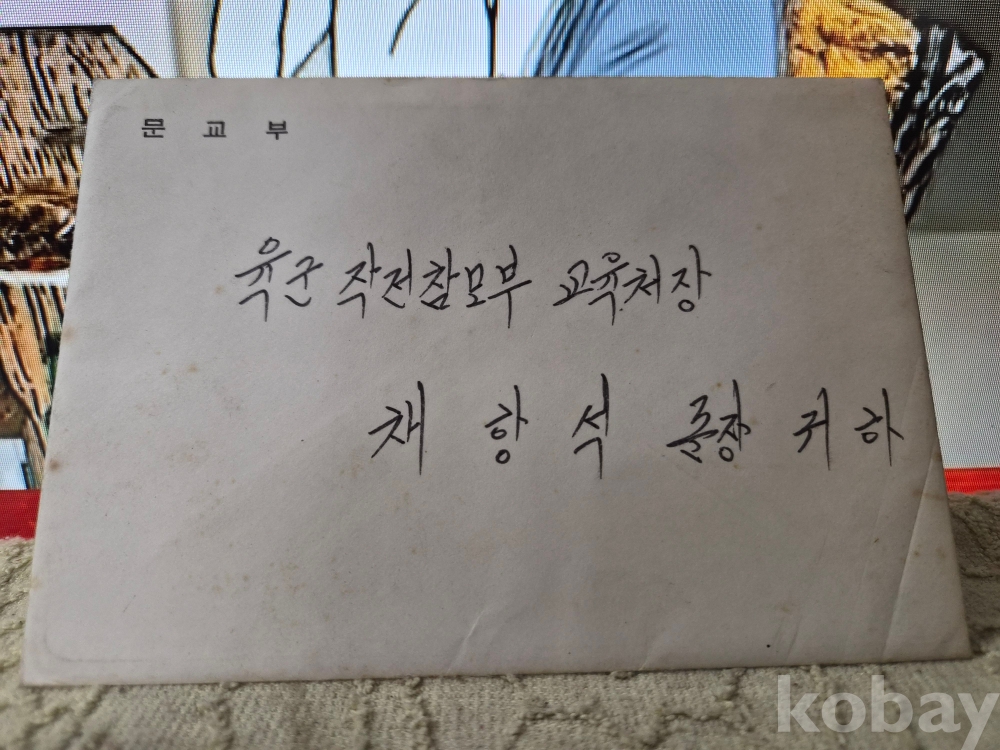 문 교 부
육군 작전참모부 교육처장
채 항 석 준장 귀하
kobay